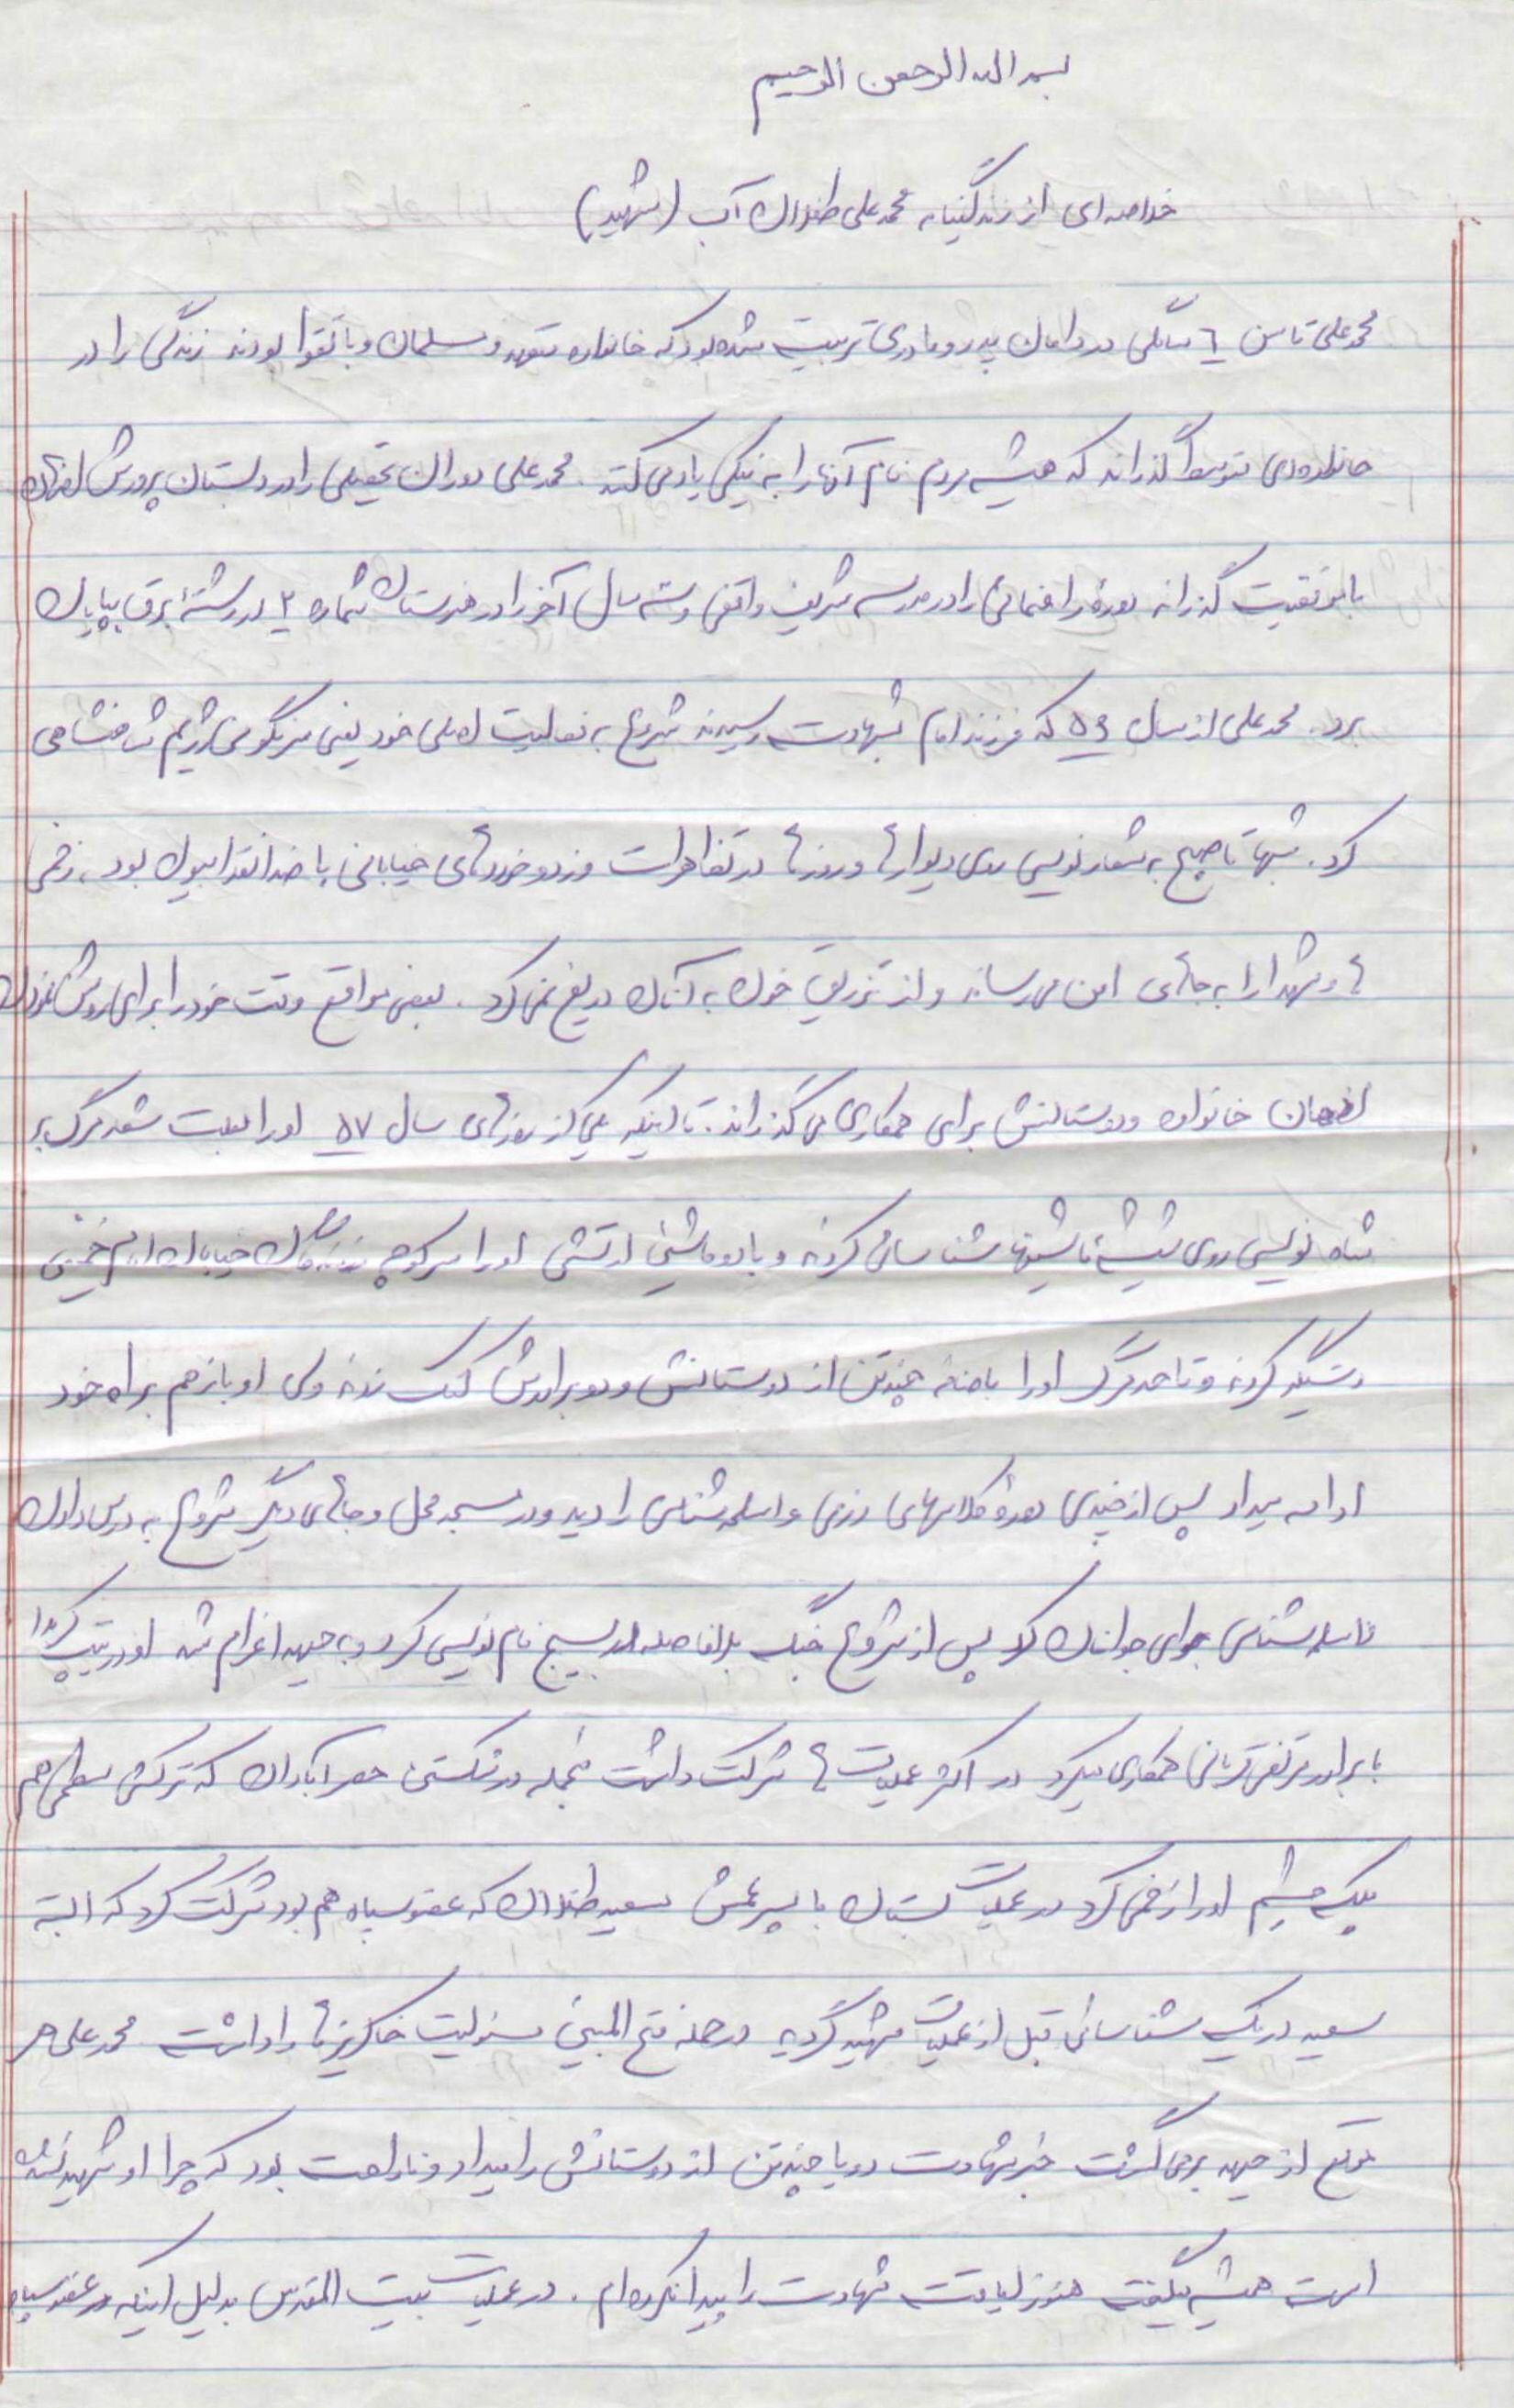 بسم الله الرحمن الرحیم
خلاصه‌ای از زندگینامه محمد علی طفلان آب (شهید)
محمد علی تا سن ٦ سالگی در دامان پدر و مادری تربیت شده بود که خانواده متعهد و مسلمان و با تقوا بودند زندگی را در
خانواده‌ی متوسط گذراند که همیشه مردم نام آنها را به نیکی یاد می کنند. محمد علی دوران تحصیلی را در دبستان پرورش
با موفقیت گذراند دورهٔ راهنمائی را در مدرسه شریف واقفی و سه سال آخر را در هنرستان شماره ۲ در رشتهٔ برق بپایان
برد. محمد علی از سال ۵۶ که فرزند امام بشهادت رسیدند شروع به فعالیت اصلی خود یعنی سرنگونی رژیم شاهنشاهی
کرد. شبها تا صبح به شعار نویسی روی دیوارها و روزها در تظاهرات و زد و خوردهای خیابانی با ضد انقلابیون بود، زخمی
ها و شهدا را به جاهای امن می رساند و از تزریق خون به آنان دریغ نمی کرد. بعضی مواقع وقت خود را برای روشن نمودن
اذهان خانواده و دوستانش برای همکاری می گذراند. تا اینکه یکی از روزهای سال ۵۷ او را بعلت شعار مرگ بر
شاه نویسی روی شیشهٔ ماشینها شناسائی کردند و با دو ماشین ارتشی او را سر کوچه خیابان امام خمینی
دستگیر کردند و تا حد مرگ او را باضافه چند تن از دوستانش و دو برادرش کتک زدند ولی او باز هم براه خود
ادامه میداد پس از چندی دورهٔ کلاسهای رزمی و اسلحه شناسی را دید و در مسجد محل و جاهای دیگر شروع به درس دادن
اسلحه شناسی برای جوانان کرد پس از شروع جنگ بلافاصله در بسیج نام نویسی کرد و به جبهه اعزام شد او در تیپ کربلا
با برادر مرتضی قربانی همکاری میکرد در اکثر عملیات ها شرکت داشت منجمله در شکستن حصر آبادان که ترکش سطحی هم
یک چشم او را زخمی کرد در عملیات بستان با پسر عمش سعید طفلان که عضو سپاه هم بود شرکت کرد که البته
سعید در یک شناسائی قبل از عملیات شهید گردید در حمله فتح المبین مسئولیت خاکریزها را داشت محمد علی هر
موقع از جبهه برمی گشت خبر شهادت دو یا چند تن از دوستانش را میداد و ناراحت بود که چرا او شهید نشده
است همیشه میگفت هنوز لیاقت شهادت را پیدا نکرده ام. در عملیات بیت المقدس بدلیل اینکه عضو سپاه